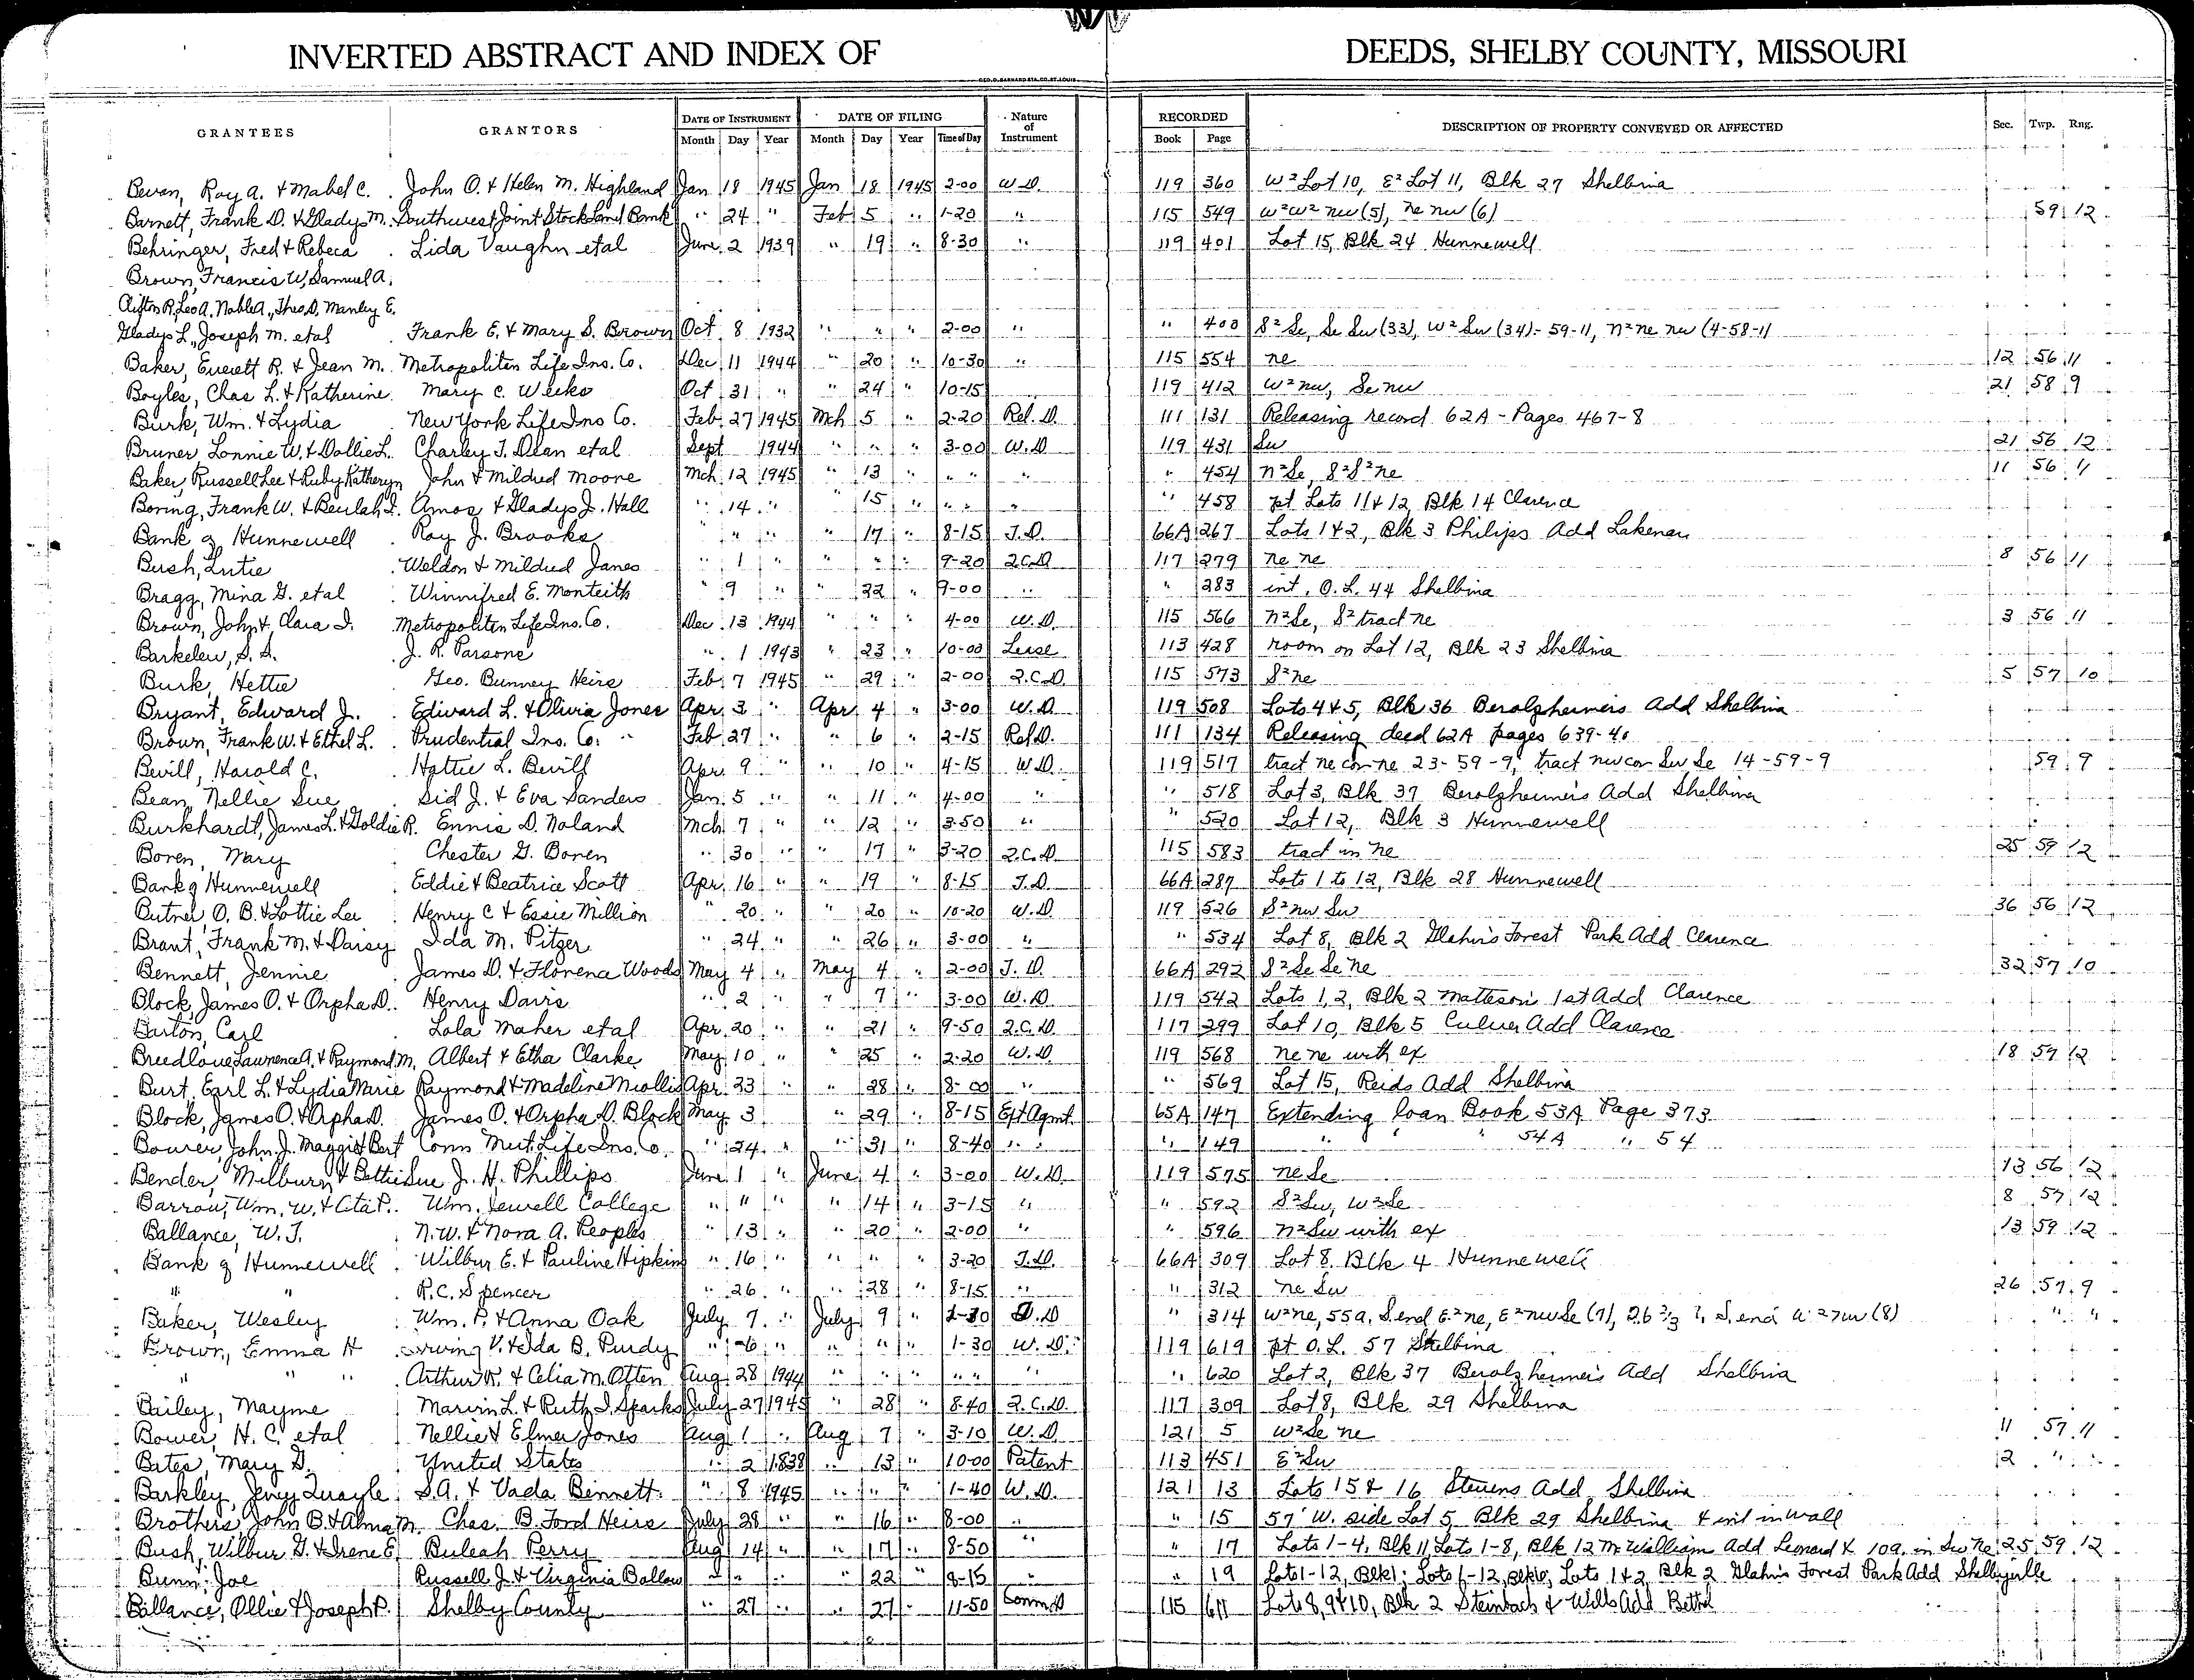 INVERTED ABSTRACT AND INDEX OF DEEDS, SHELBY COUNTY, MISSOURI
GEO. D. BARNARD STA. CO. ST. LOUIS
GRANTEES GRANTORS DATE OF INSTRUMENT DATE OF FILING Nature of Instrument RECORDED DESCRIPTION OF PROPERTY CONVEYED OR AFFECTED Sec. Twp. Rng.
Month Day Year Month Day Year Time of Day Book Page
Bevan, Roy A. & Mabel C. John O. & Helen M. Highland Jan 18 1945 Jan 18 1945 2-00 W.D. 119 360 W² Lot 10, E² Lot 11, Blk 27 Shelbina
Barnett, Frank D. & Gladys M. Southwest Joint Stock Land Bank " 24 " Feb 5 " 1-20 " 115 549 W²W² nw (5), ne nw (6) 59 12
Behringer, Fred & Rebeca Lida Vaughn etal June 2 1939 " 19 " 8-30 " 119 401 Lot 15, Blk 24 Hunnewell
Brown, Francis W, Samuel A.
Clifton R, Leo A. Noble A., Theo D. Manley E.
Gladys L., Joseph M. etal Frank E. & Mary S. Brown Oct 8 1932 " " " 2-00 " " 400 S² Se, Se Sw (33), W² Sw (34)- 59-11, n² ne nw (4-58-11
Baker, Everett R. & Jean M. Metropoliten Life Ins. Co. Dec 11 1944 " 20 " 10-30 " 115 554 ne 12 56 11
Boyles, Chas L. & Katherine Mary C. Weeks Oct 31 " " 24 " 10-15 119 412 W² nw, Se nw 21 58 9
Burk, Wm. & Lydia New York Life Ins Co. Feb 27 1945 Mch 5 " 2-20 Rel. D. 111 131 Releasing record 62A - Pages 467-8
Bruner, Lonnie W. & Dollie L. Charley T. Dean etal Sept 1944 " " " 3-00 W.D 119 431 Sw 21 56 12
Baker, Russell Lee & Ruby Katheryn John & Mildred Moore Mch 12 1945 " 13 " " " " 454 n² Se, S²S² ne 11 56 11
Boring, Frank W. & Beulah I. Amos & Gladys J. Hall " 14 " " 15 " " " " 458 pt Lots 11 & 12, Blk 14 Clarence
Bank of Hunnewell Roy J. Brooks " " " " 17 " 8-15 T.D. 66A 267 Lots 1 & 2, Blk 3 Philips Add Lakenan
Bush, Lutie Weldon & Mildred Janes " 1 " " " " 9-20 Q.C.D 117 279 ne ne 8 56 11
Bragg, Mina G. etal Winnifred E. Monteith " 9 " " 22 " 9-00 " " 283 int. O.L. 44 Shelbina
Brown, John & Clara I. Metropoliten Life Ins. Co. Dec. 13 1944 " " " 4-00 W.D. 115 566 n² Se, S² tract ne 3 56 11
Barkelew, S. A. J. R. Parsons " 1 1943 " 23 " 10-00 Lease 113 428 room on Lot 12, Blk 23 Shelbina
Burk, Hettie Geo. Bunney Heirs Feb 7 1945 " 29 " 2-00 Q.C.D. 115 573 S² ne 5 57 10
Bryant, Edward J. Edward L. & Olivia Jones Apr 3 " Apr 4 " 3-00 W.D. 119 508 Lots 4 & 5, Blk 36 Berolzheimers Add Shelbina
Brown, Frank W. & Ethel L. Prudential Ins. Co. Feb 27 " " 6 " 2-15 Rel D. 111 134 Releasing deed 62A pages 639-40
Bevill, Harold C. Hattie L. Bevill Apr. 9 " " 10 " 4-15 W.D. 119 517 tract ne cor ne 23-59-9, tract nw cor Sw Se 14-59-9 59 9
Bean, Nellie Sue Sid J. & Eva Sanders Jan. 5 " " 11 " 4-00 " " 518 Lot 3, Blk 37 Berolzheimer's Add Shelbina
Burkhardt, James L. & Goldie R. Ennis D. Noland Mch 7 " " 12 " 3-50 " " 520 Lot 12, Blk 3 Hunnewell
Boren, Mary Chester G. Boren " 30 " " 17 " 3-20 Q.C.D. 115 583 tract in ne 25 59 12
Bank of Hunnewell Eddie & Beatrice Scott Apr. 16 " " 19 " 8-15 T.D. 66A 287 Lots 1 to 12, Blk 28 Hunnewell
Butner, O. B. & Lottie Lee Henry C & Essie Million " 20 " " 20 " 10-20 W.D. 119 526 S² nw Sw 36 56 12
Brant, Frank M. & Daisy Ida M. Pitzer " 24 " " 26 " 3-00 " " 534 Lot 8, Blk 2 Glahn's Forest Park Add Clarence
Bennett, Jennie James D. & Florence Woods May 4 " May 4 " 2-00 T.D. 66A 292 S² Se Se ne 32 57 10
Block, James O. & Orpha D. Henry Davis " 2 " " 7 " 3-00 W.D. 119 542 Lots 1, 2, Blk 2 Matteson 1st Add Clarence
Barton, Carl Lola Maher etal Apr. 20 " " 21 " 9-50 Q.C.D. 117 299 Lot 10, Blk 5 Culver Add Clarence
Breedlove, Lawrence A. & Raymond M. Albert & Etha Clarke May 10 " " 25 " 2-20 W.D. 119 568 ne ne with ex 18 59 12
Burt, Earl L. & Lydia Marie Raymond & Madeline Miollis Apr. 23 " " 28 " 8-00 " " 569 Lot 15, Reids Add Shelbina
Block, James O. & Orpha D. James O. & Orpha D. Block May 3 " 29 " 8-15 Ext Agmt. 65A 147 Extending loan Book 53A Page 373
Bower, John J. Maggie & Bert Conn Mut. Life Ins. Co. " 24 " " 31 " 8-40 " " 149 " " " 54A " 54
Bender, Milburn & Bettie Sue J. H. Phillips June 1 " June 4 " 3-00 W.D. 119 575 ne Se 13 56 12
Barrow, Wm. W. & Cita P. Wm. Jewell College " " " " 14 " 3-15 " " 592 S² Sw, W² Se 8 57 12
Ballance, W. T. N. W. & Nora A. Peoples " 13 " " 20 " 2-00 " " 596 n² Sw with ex 13 59 12
Bank of Hunnewell Wilbur E. & Pauline Hipkins " 16 " " " " 3-20 T.D. 66A 309 Lot 8, Blk 4 Hunnewell
" " R. C. Spencer " 26 " " 28 " 8-15 " " 312 ne Sw 26 57 9
Baker, Wesley Wm. P. & Anna Oak July 7 " July 9 " T.D " 314 W² ne, 55a. S. end E² ne, E² nw Se (7), 26 2/3 a S. end W² nw (8) " "
Brown, Emma H Irving V. & Ida B. Purdy " 6 " " " " 1-30 W.D. 119 619 pt O.L. 57 Shelbina
" " " Arthur R. & Celia M. Otten Aug. 28 1944 " " " " " " 620 Lot 2, Blk 37 Berolzheimer's Add Shelbina
Bailey, Mayme Marvin L. & Ruth I. Sparks July 27 1945 " 28 " 8-40 Q.C.D. 117 309 Lot 8, Blk 29 Shelbina
Bower, H. C. etal Nellie & Elmer Jones Aug 1 " Aug 7 " 3-10 W.D. 121 5 W² Se ne 11 57 11
Bates, Mary D. United States " 2 1838 " 13 " 10-00 Patent 113 451 E² Sw 12 " "
Barkley, Jency Quayle S.A. & Vada Bennett " 8 1945 " " " 1-40 W.D. 121 13 Lots 15 & 16 Stevens Add Shelbina
Brothers, John B. & Alma M. Chas. B. Ford Heirs July 28 " " 16 " 8-00 " " 15 57' W. side Lot 5, Blk 29 Shelbina & int in wall
Bush, Wilbur G. & Irene E. Buleah Perry Aug 14 " " 17 " 8-50 " " 17 Lots 1-4, Blk 11, Lots 1-8, Blk 12 McWilliam Add Leonard & 10a. in Sw ne 25 59 12
Bunn, Joe Russell J. & Virginia Ballow " " " " 22 " 8-15 " " 19 Lots 1-12, Blk 1; Lots 1-12, Blk 10; Lots 1 & 2, Blk 2 Glahn's Forest Park Add Shelbyville
Ballance, Ollie & Joseph P. Shelby County " 27 " " 27 " 11-50 Comm D 115 611 Lots 8, 9 & 10, Blk 2 Steinbach & Wills Add Bethel